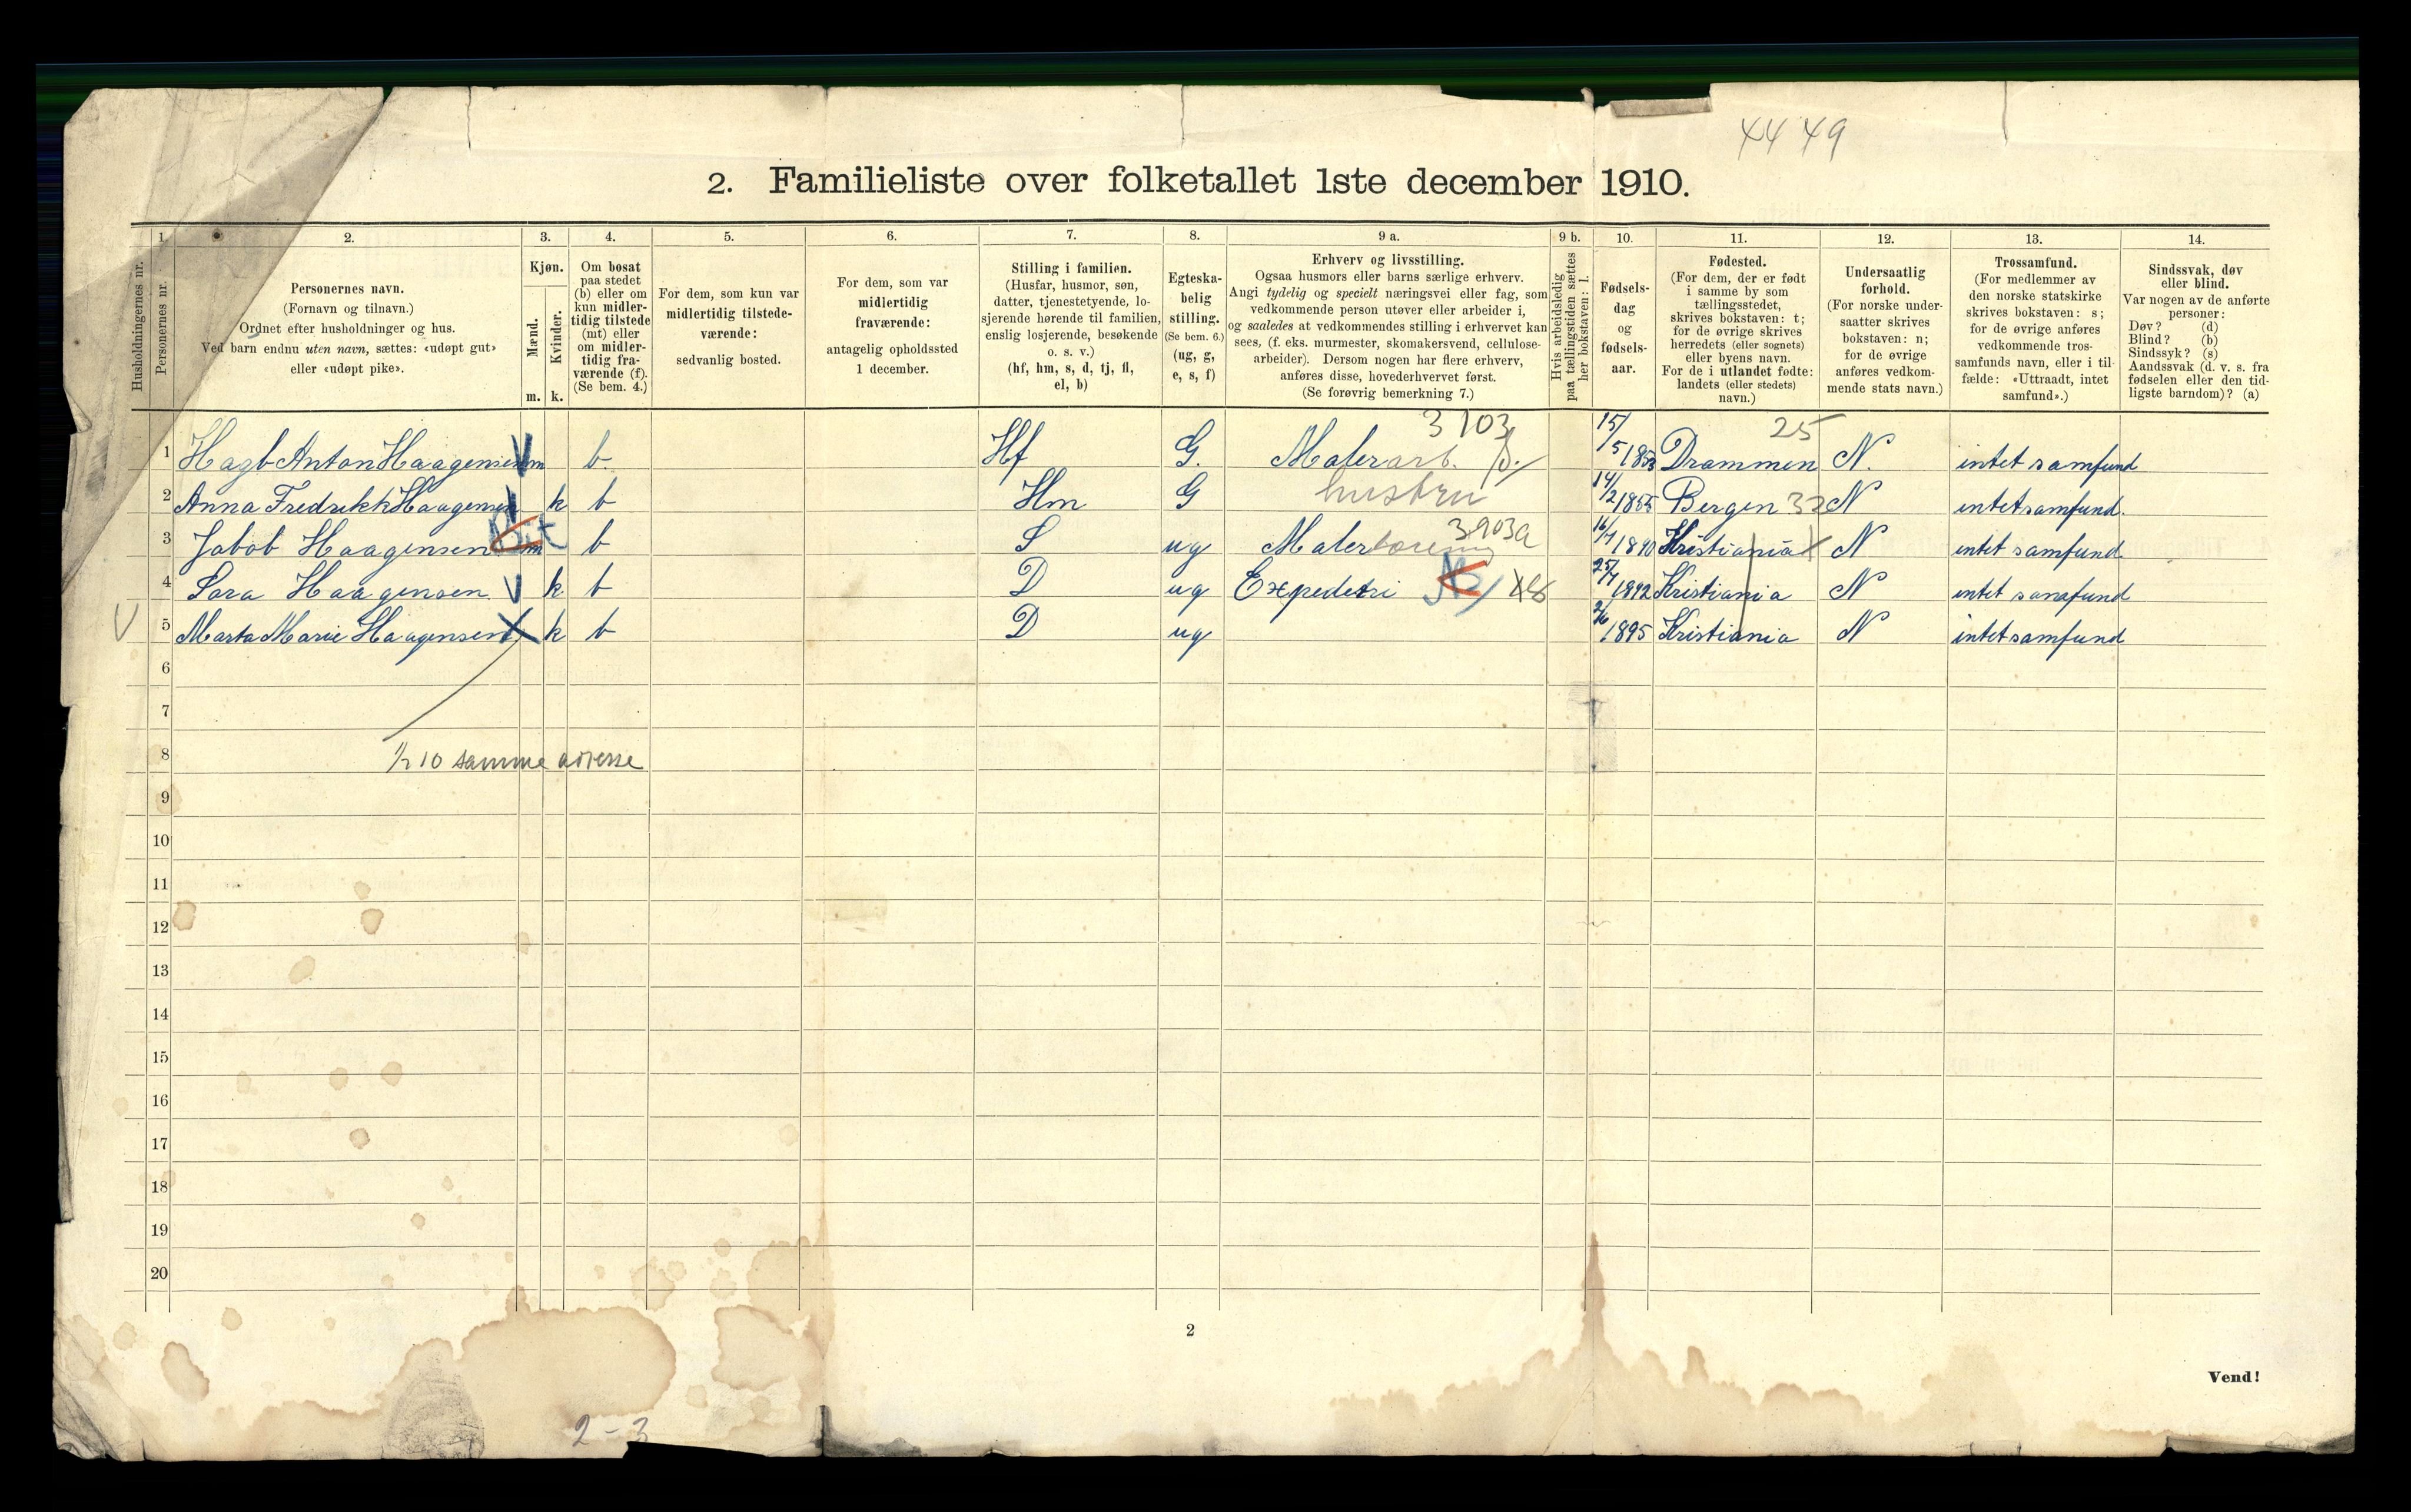 4449
2. Familieliste over folketallet 1ste december 1910.
Husholdningernes nr.
1.
Personernes nr.
2.
Personernes navn.
(Fornavn og tilnavn.)
Ordnet efter husholdninger og hus.
Ved barn endnu uten navn, sættes: «udøpt gut»
eller «udøpt pike».
3.
Kjøn.
Mænd.
Kvinder.
m.
k.
4.
Om bosat
paa stedet
(b) eller om
kun midler-
tidig tilstede
(mt) eller
om midler-
tidig fra-
værende (f).
(Se bem. 4.)
5.
For dem, som kun var
midlertidig tilstede-
værende:
sedvanlig bosted.
6.
For dem, som var
midlertidig
fraværende:
antagelig opholdssted
1 december.
7.
Stilling i familien.
(Husfar, husmor, søn,
datter, tjenestetyende, lo-
sjerende hørende til familien,
enslig losjerende, besøkende
o. s. v.)
(hf, hm, s, d, tj, fl,
el, b)
8.
Egteska-
belig
stilling.
(Se bem. 6.)
(ug, g,
e, s, f)
9 a.
Erhverv og livsstilling.
Ogsaa husmors eller barns særlige erhverv.
Angi tydelig og specielt næringsvei eller fag, som
vedkommende person utøver eller arbeider i,
og saaledes at vedkommendes stilling i erhvervet kan
sees, (f. eks. murmester, skomakersvend, cellulose-
arbeider). Dersom nogen har flere erhverv,
anføres disse, hovederhvervet først.
(Se forøvrig bemerkning 7.)
9 b.
Hvis arbeidsledig
paa tællingstiden sættes
her bokstaven: l.
10.
Fødsels-
dag
og
fødsels-
aar.
11.
Fødested.
(For dem, der er født
i samme by som
tællingsstedet,
skrives bokstaven: t;
for de øvrige skrives
herredets (eller sognets)
eller byens navn.
For de i utlandet fødte:
landets (eller stedets)
navn.)
12.
Undersaatlig
forhold.
(For norske under-
saatter skrives
bokstaven: n;
for de øvrige
anføres vedkom-
mende stats navn.)
13.
Trossamfund.
(For medlemmer av
den norske statskirke
skrives bokstaven: s;
for de øvrige anføres
vedkommende tros-
samfunds navn, eller i til-
fælde: «Uttraadt, intet
samfund».)
14.
Sindssvak, døv
eller blind.
Var nogen av de anførte
personer:
Døv? (d)
Blind? (b)
Sindssyk? (s)
Aandssvak (d. v. s. fra
fødselen eller den tid-
ligste barndom)? (a)
3103 25
1 Hagb Anton Haagensen m b Hf G. Malerarb. 15/5 1853 Drammen N. intet samfund
2 Anna Fredrikk Haagensen k b Hm G hustru 14/2 1855 Bergen 32 N intet samfund.
3903a
3 Jabob Haagensen m b S ug Maler 16/7 1890 Kristiania N intet samfund
4 Sara Haagensen k b D ug Expedetri 25/7 1892 Kristiania N intet samfund
5 Marta Marie Haagensen k b D ug 2/6 1895 Kristiania N intet samfund
6
7
8 1/2 10 samme adresse
9
10
11
12
13
14
15
16
17
18
19
20
2
Vend!
2-3